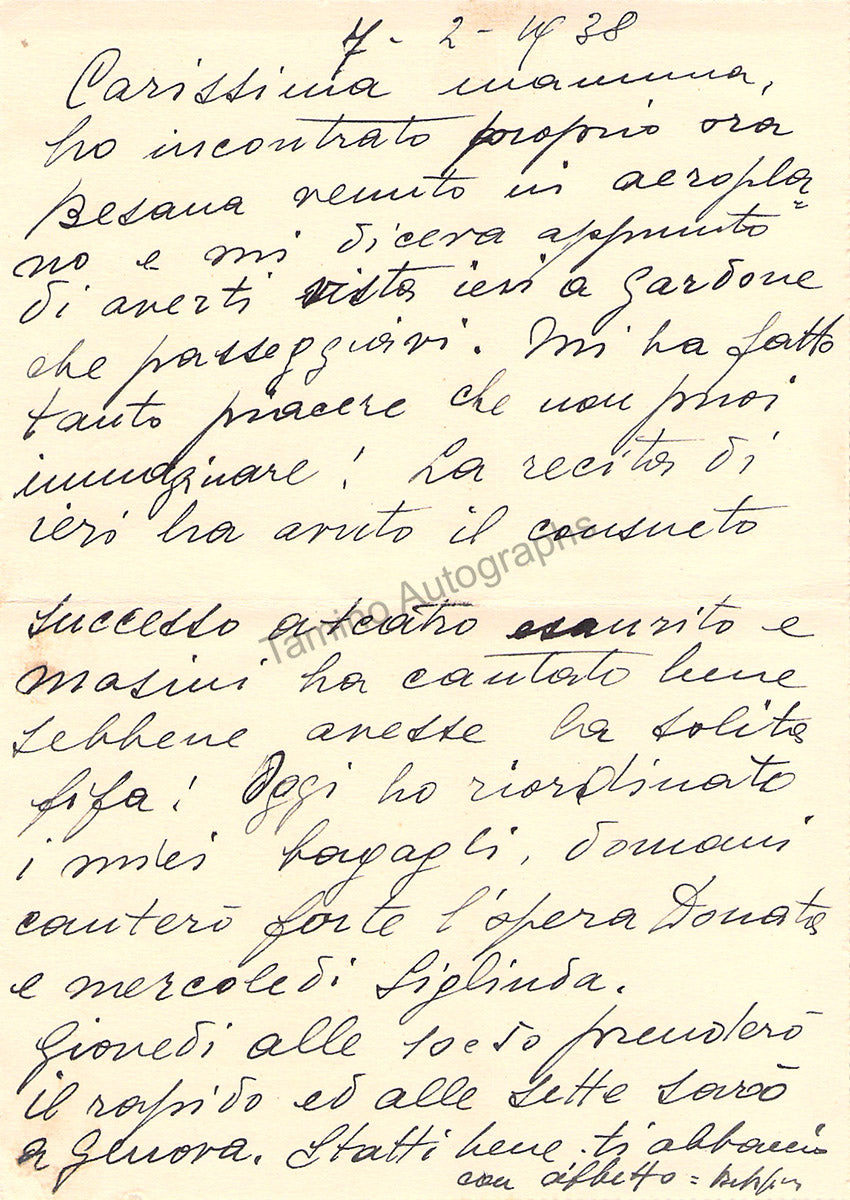 7 - 2 - 1938
Carissima mamma,
ho incontrato proprio ora
Besana venuto in aeropla=
no e mi diceva appunto
di averti vista ieri a Gardone
che passeggiavi. Mi ha fatto
tanto piacere che non puoi
immaginare! La recita di
ieri ha avuto il consueto
successo a teatro esaurito e
Masini ha cantato bene
sebbene avesse la solita
fifa! Oggi ho riordinato
i miei bagagli, domani
canterò forte l'opera Donata
e mercoledì Siglinda.
Giovedì alle 10 e 50 prenderò
il rapido ed alle sette sarò
a Genova. Statti bene ti abbraccio
con affetto =
Tamino Autographs